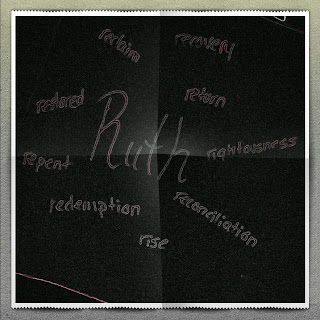 reclaim
recovery
restored
return
Ruth
rightousness
repent
redemption
reconciliation
rise